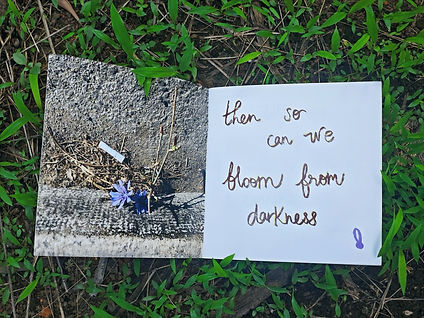 then so
can we
bloom from
darkness